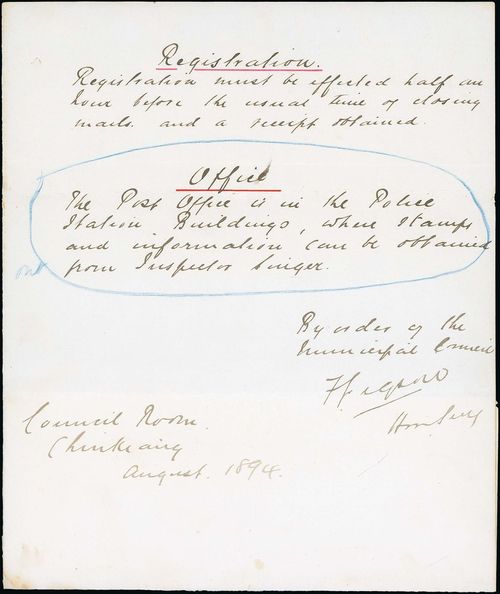 Registration.
Registration must be effected half an
hour before the usual time of closing
mails and a receipt obtained.
Office
The Post Office is in the Police
Station Buildings, where stamps
and information can be obtained
from Inspector Singer.
out
By order of the
Municipal Council
Hon. Secy
Council Room.
Chinkiang
August. 1894.